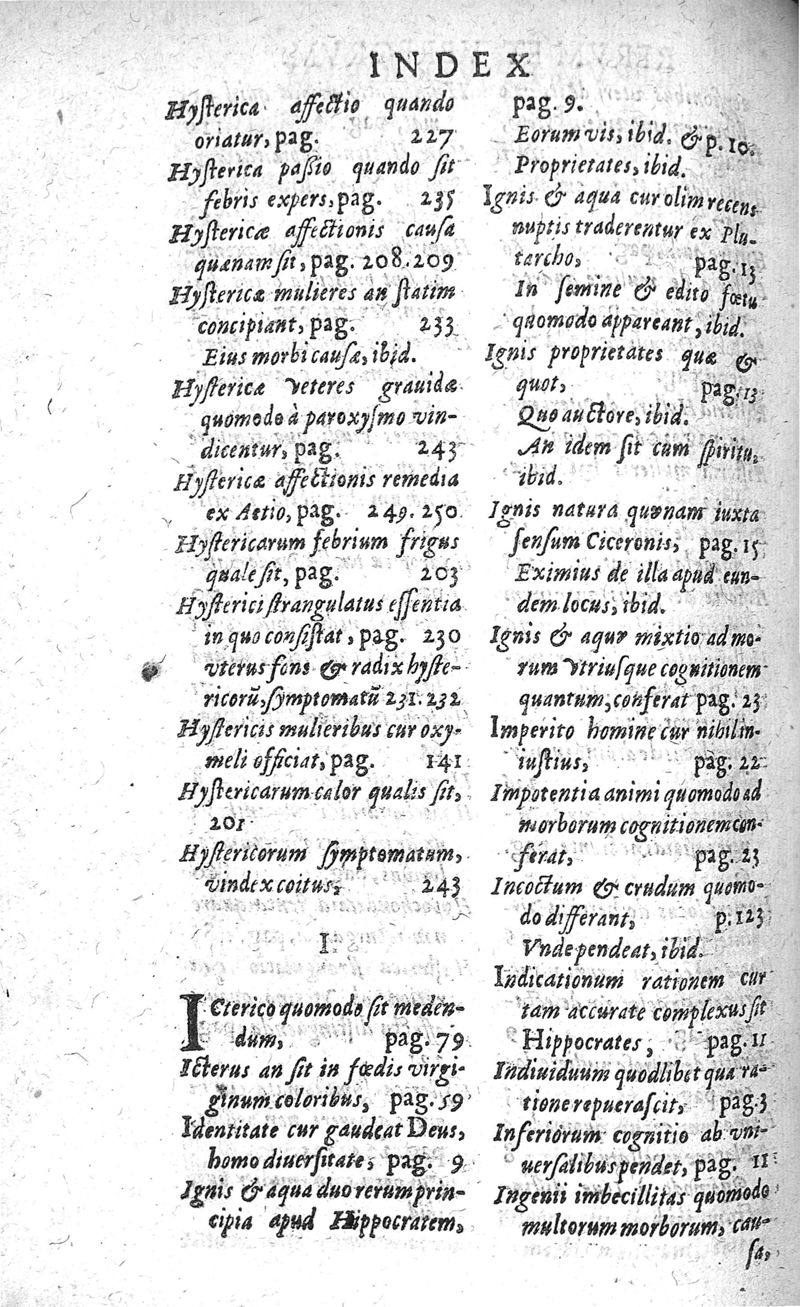 INDEX
Hyſterica affectio quando
oriatur, pag. 227
Hyſterica paßio quando ſit
febris expers, pag. 235
Hyſtericæ affectionis cauſa
quænam ſit, pag. 208. 209
Hyſtericæ mulieres an ſtatim
concipiant, pag. 233
Eius morbi cauſæ, ibid.
Hyſtericæ veteres grauidæ
quomodo à paroxyſmo vin-
dicentur, pag. 243
Hyſtericæ affectionis remedia
ex Aetio, pag. 249. 250
Hyſtericarum febrium frigus
quale ſit, pag. 203
Hyſterici ſtrangulatus eſſentia
in quo conſiſtat, pag. 230
vterus fons & radix hyſte-
ricorũ, ſymptomatũ 231. 232
Hyſtericis mulieribus cur oxy-
meli officiat, pag. 141
Hyſtericarum calor qualis ſit,
201
Hyſtericorum ſymptomatum,
vindex coitus, 243
I.
ICterico quomodo ſit meden-
dum, pag. 79
Icterus an ſit in fœdis virgi-
ginum coloribus, pag. 59
Identitate cur gaudeat Deus,
homo diuerſitate, pag. 9
Ignis & aqua duo rerum prin-
cipia apud Hippocratem,
pag. 9.
Eorum vis, ibid. & p. 10.
Proprietates, ibid.
Ignis & aqua cur olim recens
nuptis traderentur ex Plu-
tarcho, pag. 13
In ſemine & edito fœtu
quomodo appareant, ibid.
Ignis proprietates quæ &
quot, pag. 13
Quo auctore, ibid.
An idem ſit cum ſpiritu,
ibid.
Ignis natura quænam iuxta
ſenſum Ciceronis, pag. 15
Eximius de illa apud eun-
dem locus, ibid.
Ignis & aquæ mixtio ad mo-
rum vtriuſque cognitionem
quantum, conferat pag. 23
Imperito homine cur nihil in-
iuſtius, pag. 22
Impotentia animi quomodo ad
morborum cognitionem con-
ferat, pag. 23
Incoctum & crudum quomo-
do differant, p. 123
Vnde pendeat, ibid.
Indicationum rationem cur
tam accurate complexus ſit
Hippocrates, pag. 11
Indiuiduum quodlibet qua ra-
tione repueraſcit, pag. 3
Inferiorum cognitio ab vni-
uerſalibus pendet, pag. 11
Ingenii imbecillitas quomodo
multorum morborum, cau-
ſa,